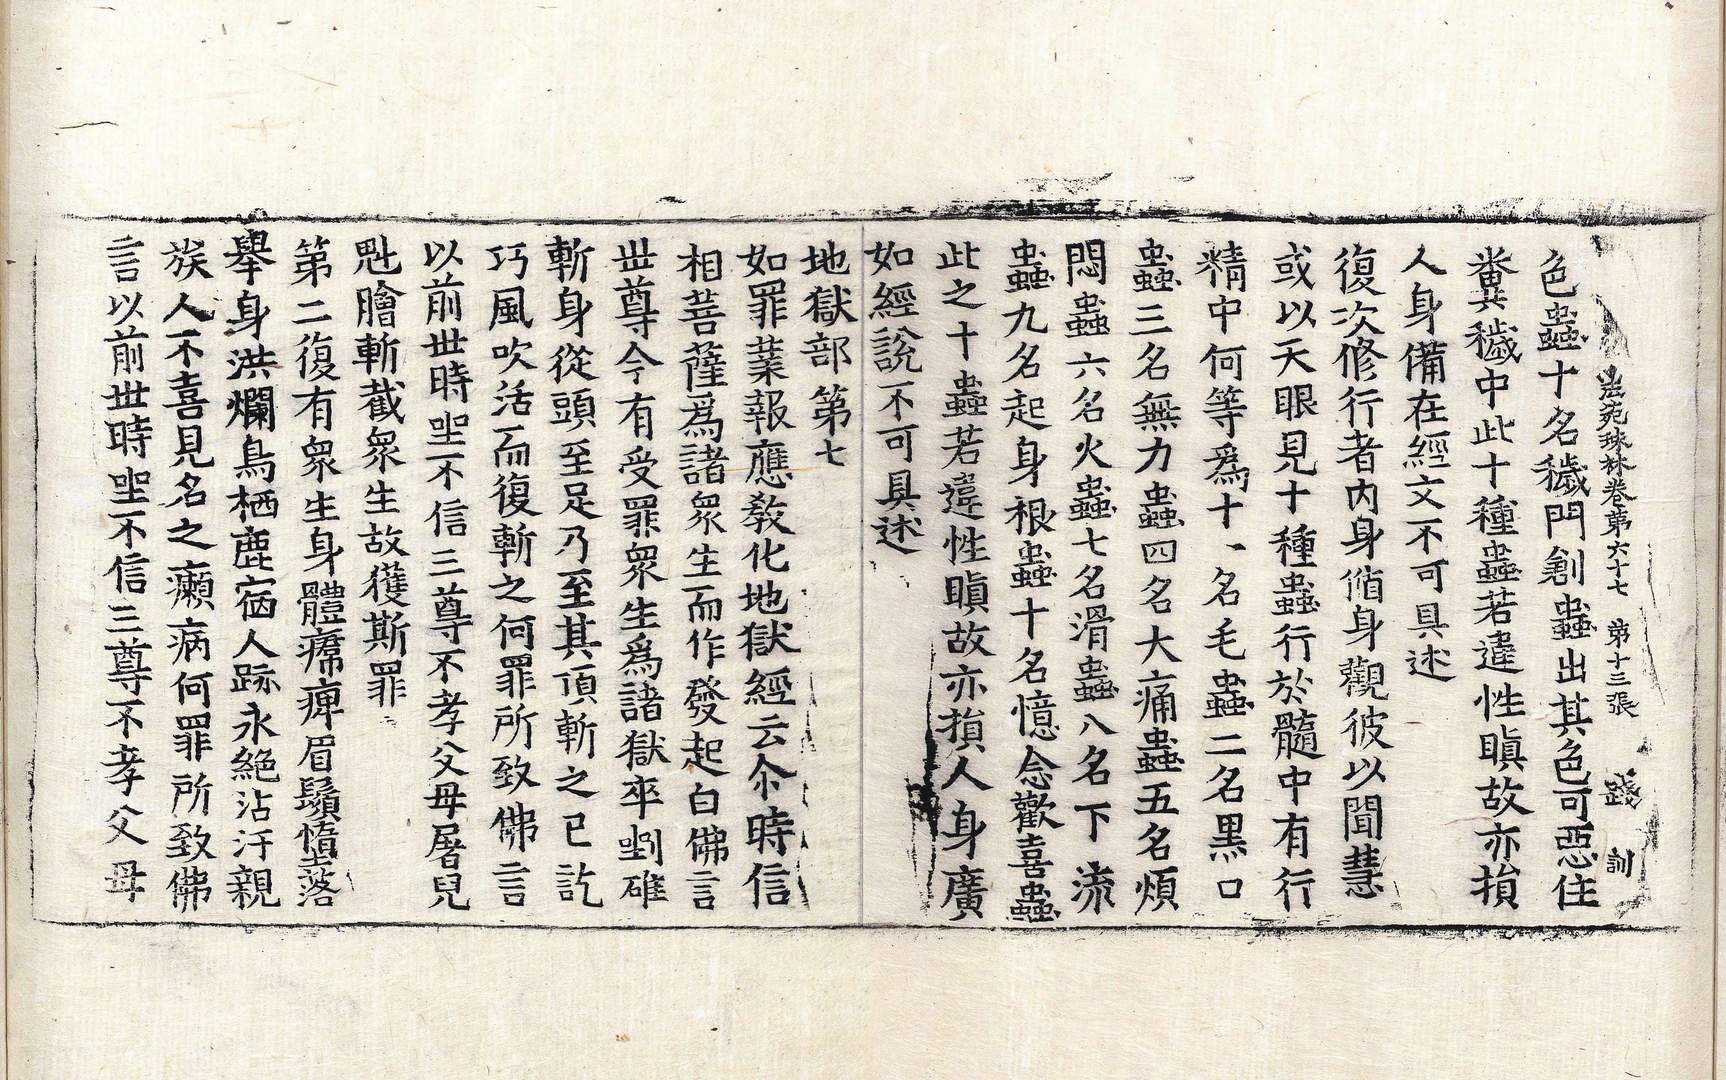 法苑珠林卷第六十七 第十三張 踐 訓
色蟲十名穢門創蟲出其色可惡住
糞穢中此十種蟲若違性瞋故亦損
人身備在經文不可具述
復次修行者內身循身觀彼以聞慧
或以天眼見十種蟲行於髓中有行
精中何等爲十一名毛蟲二名黑口
蟲三名無力蟲四名大痛蟲五名煩
悶蟲六名火蟲七名滑蟲八名下流
蟲九名起身根蟲十名憶念歡喜蟲
此之十蟲若違性瞋故亦損人身廣
如經說不可具述
地獄部第七
如罪業報應敎化地獄經云尒時信
相菩薩爲諸衆生而作發起白佛言
世尊今有受罪衆生爲諸獄卒剉碓
斬身從頭至足乃至其頂斬之已訖
巧風吹活而復斬之何罪所致佛言
以前世時坐不信三尊不孝父母屠兒
魁膾斬截衆生故獲斯罪
第二復有衆生身體癠痺眉鬚墮落
擧身洪爛鳥栖鹿宿人跡永絶沾汙親
族人不喜見名之癩病何罪所致佛
言以前世時坐不信三尊不孝父母